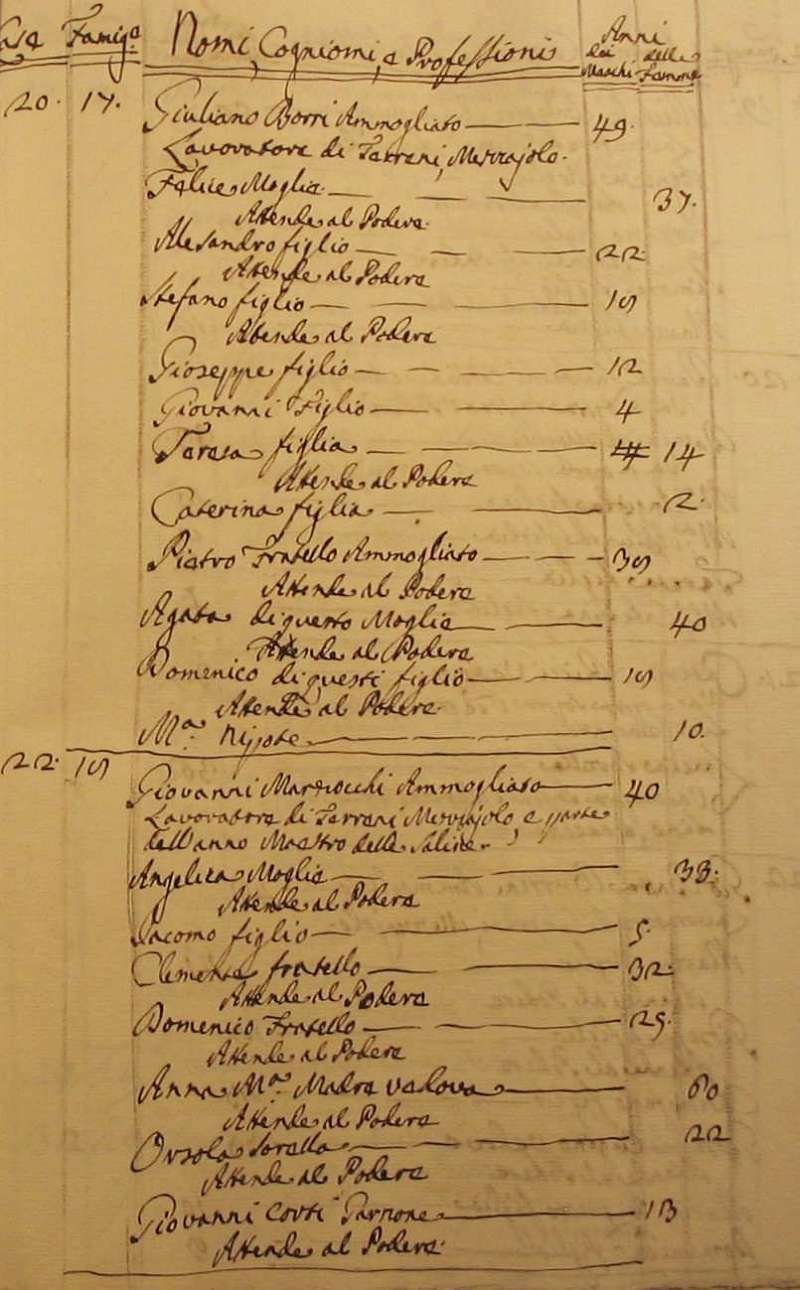 Casa Famig.a Nomi, Cogniomi, e Professionis Anni
dei Maschi delle Famine
20. 17. Giuliano Borri Ammogliato 49.
Lavoratore di Tarreni, Mezzajolo.
Felice Moglie 37.
Attende al Podere.
Alesandro figlio 22
Attende al Podere
Stefano figlio
Attende al Podere
Gioseppe figlio 12
Giovanni Figlio 4
Taresa figlia 14
Attende al Podere
Caterina figlia 2.
Pietro Fratello Ammogliato
Attende al Podere
Agata di questo Moglie 40
Attende al Podere
Domenico di questi figlio
Attende al Podere.
M.a Nipote 10.
22. Giovanni Ammogliato 40
Lavoratore di Tarreni Mezzajolo, e parte
dell'anno Mastro delle Saline.
Angelica Moglie 38.
Attende al Podere
Jacomo figlio 5.
Clemente fratello 32.
Attende al Podere
Domenico Fratello 25.
Attende al Podere
Anna M.a Madre vedova 60
Attende al Podere
Orsola Sorella 22
Attende al Podere
Giovanni Corsi Garzone 13
Attende al Podere.